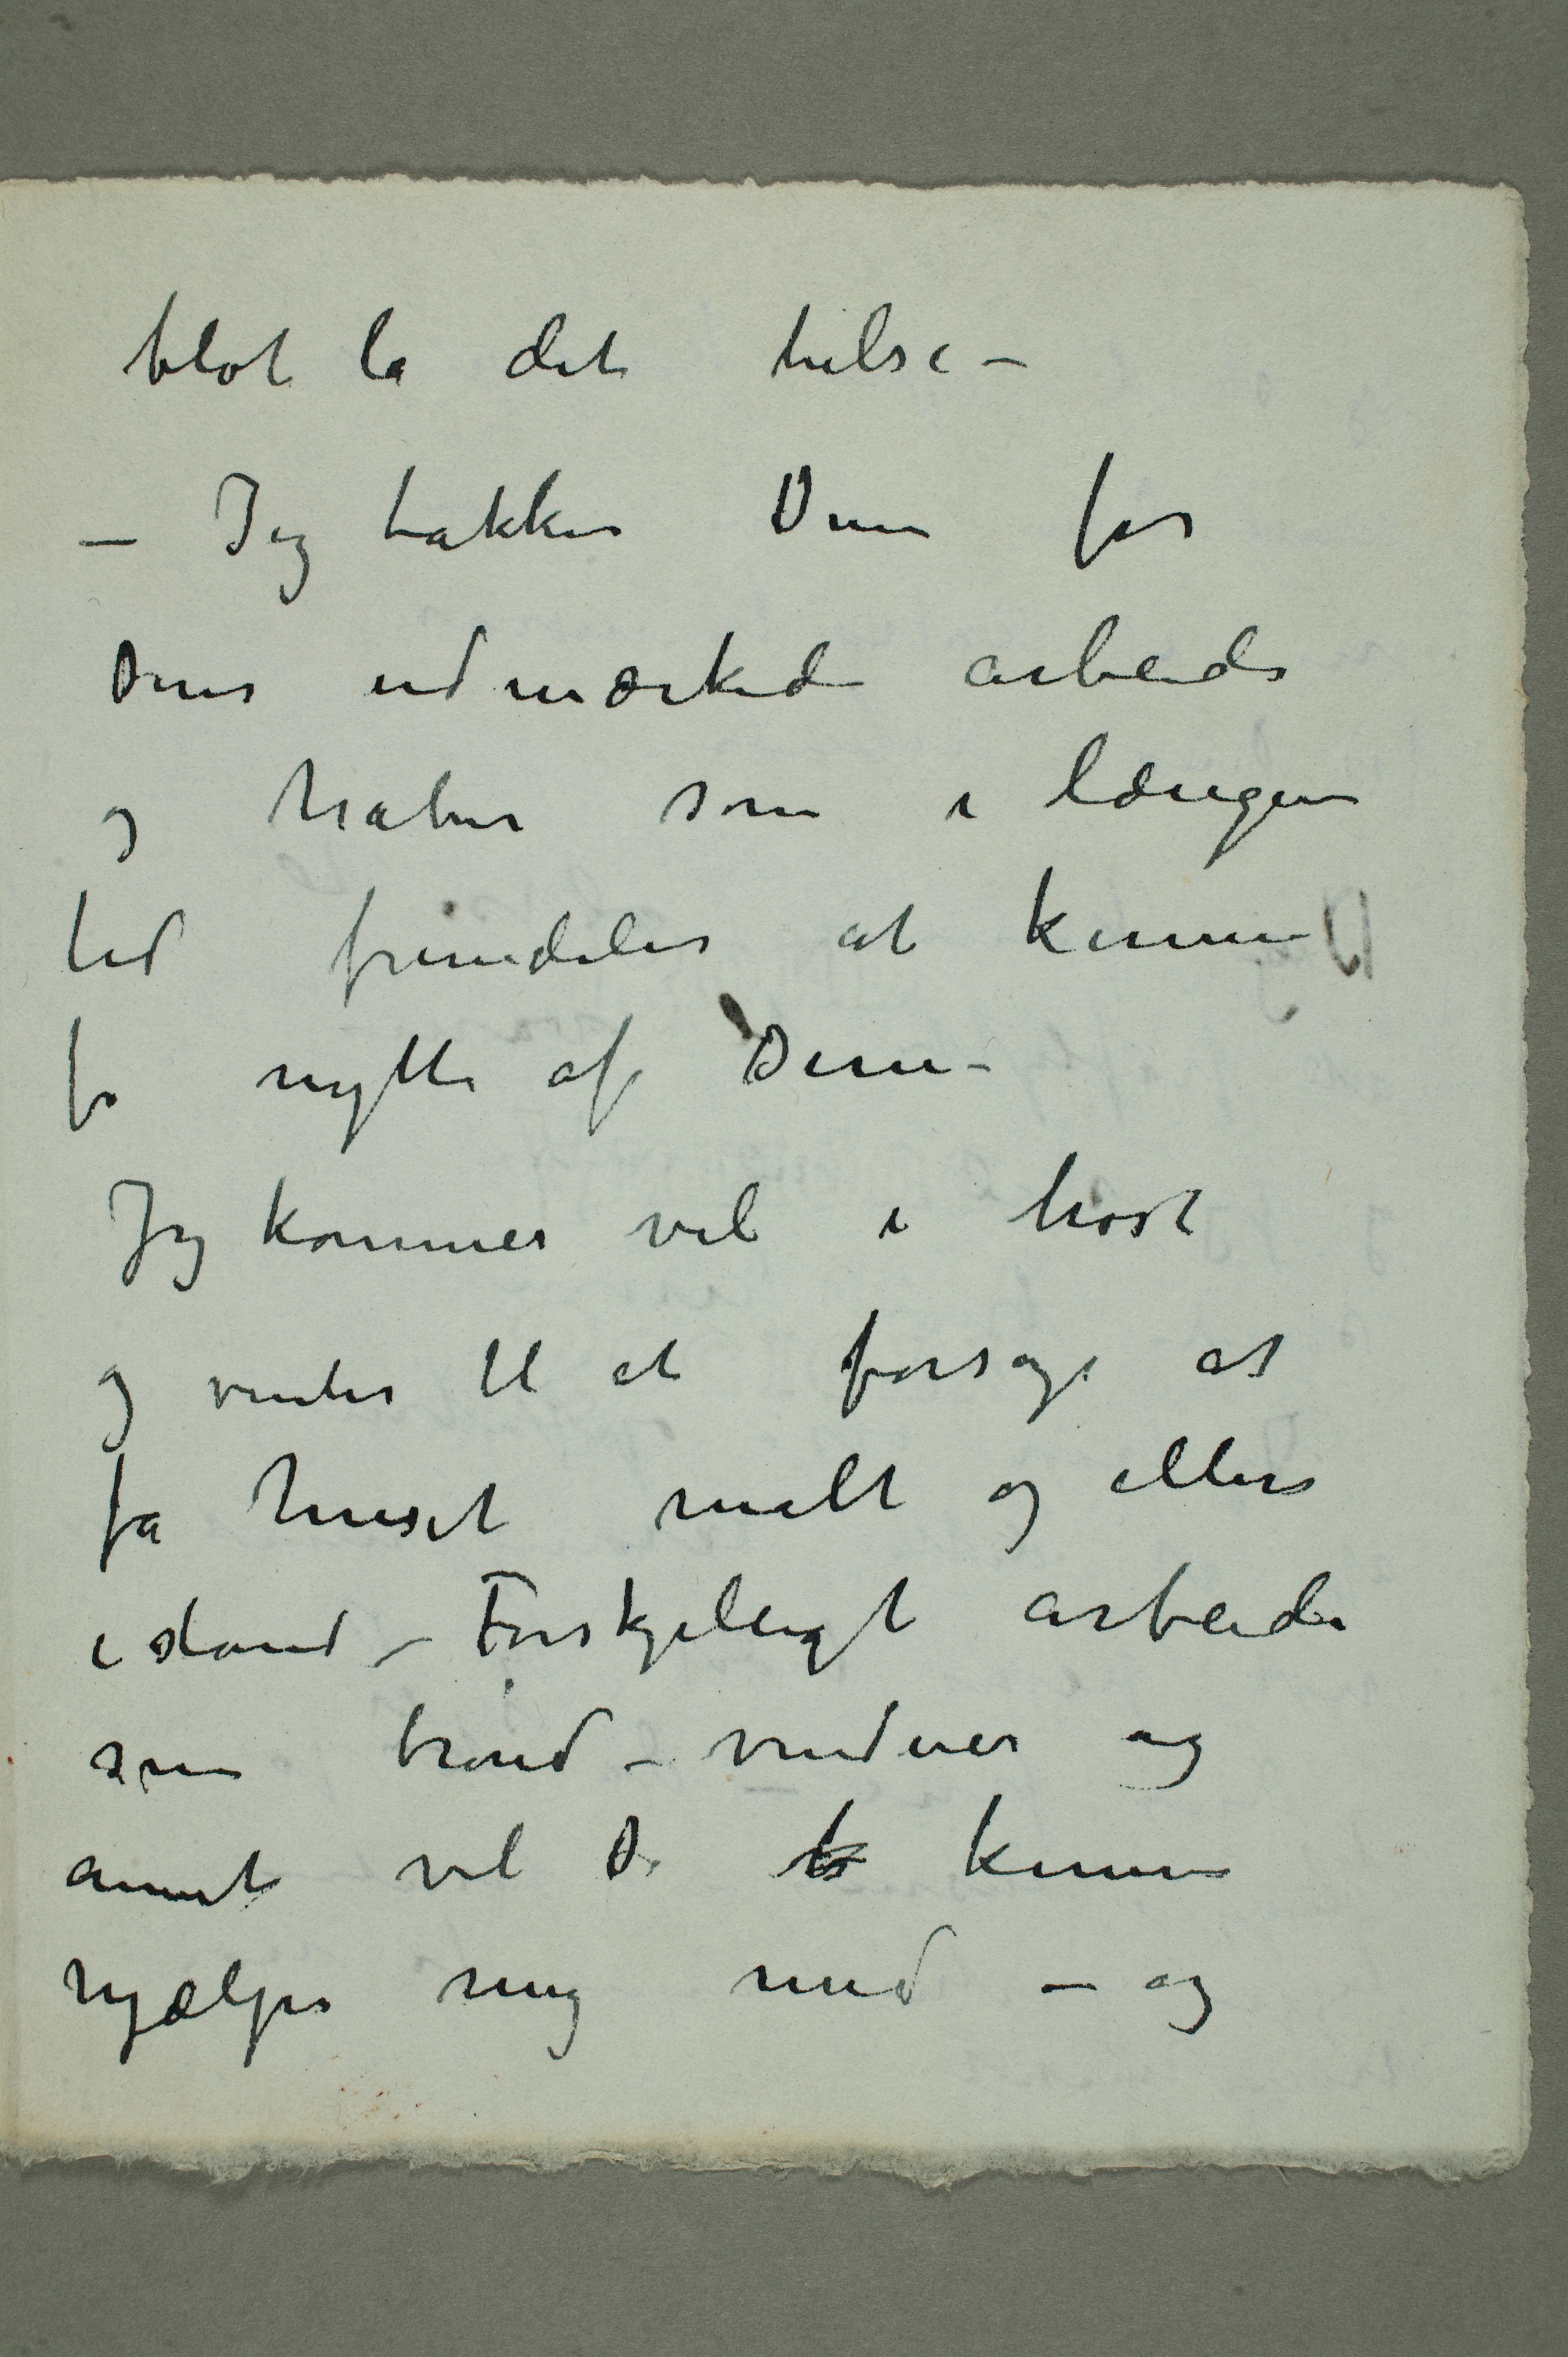 blot la det hilse –
– Jeg takker Dem for
Deres udmærkede arbeide
og haaber som i længere
tid fremdeles at kunne
fa nytte af Dem –
Jeg kommer vel i høst
og vinter til at forsøge at
få huset malt og ellers
istand – Forskjelligt arbeide
som brønd – vinduer og
annet vil De kunne
hjælpe mig med – og